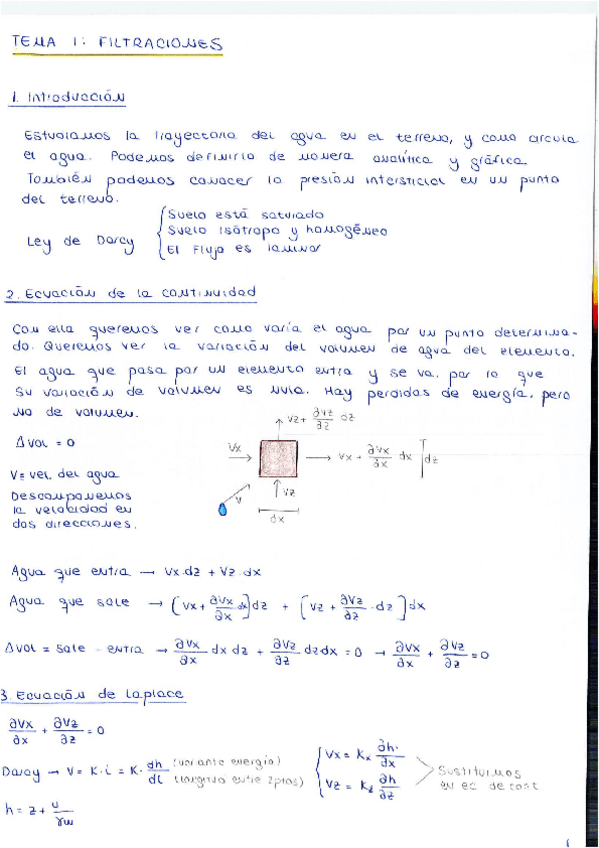 TEMA 1: FILTRACIONES
1. Introducción
Estudiamos la trayectoria del agua en el terreno, y como circula
el agua. Podemos definirlo de manera analítica y gráfica.
También podemos conocer la presión intersticial en un punto
del terreno.
Ley de Darcy { Suelo está saturado
Suelo isótropo y homogéneo
El flujo es laminar
2. Ecuación de la continuidad
Con ella queremos ver como varía el agua por un punto determina-
do. Queremos ver la variación del volumen de agua del elemento.
El agua que pasa por un elemento entra y se va, por lo que
su variación de volumen es nula. Hay perdidas de energía, pero
no de volumen.
Δvol = 0
V = vel. del agua
Descomponemos
la velocidad en
dos direcciones.
Vz + ∂Vz/∂z dz
Vx
Vx + ∂Vx/∂x dx
dz
V
Vz
dx
Agua que entra → Vx·dz + Vz·dx
Agua que sale → [Vx + ∂Vx/∂x dx]dz + [Vz + ∂Vz/∂z · dz]dx
Δvol = sale - entra → ∂Vx/∂x dx dz + ∂Vz/∂z dz dx = 0 → ∂Vx/∂x + ∂Vz/∂z = 0
3. Ecuación de Laplace
∂Vx/∂x + ∂Vz/∂z = 0
Darcy → V = K·i = K· dh/dl (variante energía) (longitud entre 2 ptos)
{ Vx = Kx ∂h/∂x
Vz = Kz ∂h/∂z
Sustituimos
en ec. de cont.
h = z + u/γw
1